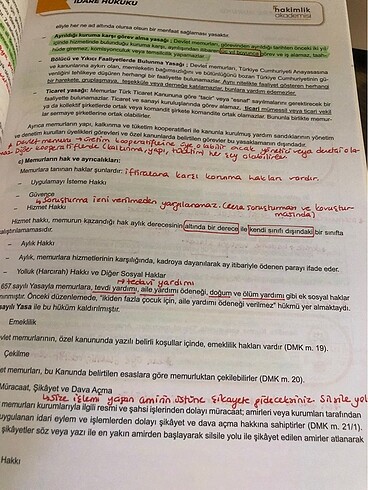 İDARE HUKUKU
hakimlik akademisi
eliyle her ne ad altında olursa olsun bir menfaat sağlaması yasaktır.
– Ayrıldığı kuruma karşı görev alma yasağı : Devlet memurları, görevinden ayrıldığı tarihten önceki iki yıl
içinde hizmetinde bulunduğu kuruma karşı, ayrıldığı tarihten
görev ve iş alamaz, taahhüde giremez, komisyonculuk ve temsilcilik yapamazlar.
– Bölücü ve Yıkıcı Faaliyetlerde Bulunma Yasağı ; Devlet memurları, Türkiye Cumhuriyeti Anayasasına
ve kanunlarına aykırı olan, memleketin bağımsızlığını ve bütünlüğünü bozan Türkiye Cumhuriyetinin
güvenliğini tehlikeye düşüren herhangi bir faaliyette bulunamazlar. Aynı nitelikte faaliyet gösteren herhangi
bir harekete, gruplaşmaya, teşekküle veya derneğe katılamazlar, bunlara yardım edemezler.
– Ticaret yasağı: Memurlar Türk Kanununa göre "tacir" veya "esnaf" sayılmalarını gerektirecek bir
faaliyette bulunamazlar. Ticaret ve sanayi kuruluşlarında görev alamaz, ticari mümessil veya ticari vekil
ya da kollektif şirketlerde ortak veya komandit şirkette komandite ortak olamazlar. Bununla birlikte memurlar
sermaye şirketlerine ortak olabilirler.
Ayrıca memurların yapı, kalkınma ve tüketim kooperatifleri ile kanunla kurulmuş yardım sandıklarının yönetim
ve denetim kurulları üyelikleri görevleri ve özel kanunlarda belirtilen görevler bu yasaklamanın dışındadır.
* Devlet memuru → üretim kooperatiflerine üye olabilir ancak yönetici veya denetici
Diğer kooperatiflerde (kalkınma, yapı, tüketim) her şey olabilirler
c) Memurların hak ve ayrıcalıkları:
Memurlara tanınan haklar şunlardır: iftiralara karşı korunma hakları vardır.
– Uygulamayı İsteme Hakkı
– Güvence
↳ Soruşturma izni verilmeden yargılanamaz. (Ceza soruşturması ve kovuşturmasında)
– Hizmet Hakkı
Hizmet hakkı, memurun kazandığı hak aylık derecesinin altında bir derece ile kendi sınıfı dışındaki bir sınıfta
çalıştırılamamasıdır.
– Aylık Hakkı
Aylık, memurlara hizmetlerinin karşılığında, kadroya dayanılarak ay itibariyle ödenen parayı ifade eder.
– Yolluk (Harcirah) Hakkı ve Diğer Sosyal Haklar
→ tedavi yardımı
657 sayılı Yasayla memurlara, tevdi yardımı, aile yardımı ödeneği, doğum ve ölüm yardımı gibi ek sosyal haklar
tanınmıştır. Önceki düzenlemede, "ikiden fazla çocuk için, aile yardımı ödeneği verilmez" hükmü yer almaktaydı.
sayılı Yasa ile bu hüküm kaldırılmıştır.
Emeklilik
Devlet memurlarının, özel kanununda yazılı belirli koşullar içinde, emeklilik hakları vardır (DMK m. 19).
Çekilme
Devlet memurları, bu Kanunda belirtilen esaslara göre memurluktan çekilebilirler (DMK m. 20).
Müracaat, Şikâyet ve Dava Açma
↳ size işlemi yapan amirin üstüne şikayete gideceksiniz. Silsile yol
memurları kurumlarıyla ilgili resmi ve şahsi işlerinden dolayı müracaat; amirleri veya kurumları tarafından
uygulanan idari eylem ve işlemlerden dolayı şikâyet ve dava açma hakkına sahiptirler (DMK m. 21/1).
şikâyetler söz veya yazı ile en yakın amirden başlayarak silsile yolu ile şikâyet edilen amirler atlanarak
Hakkı